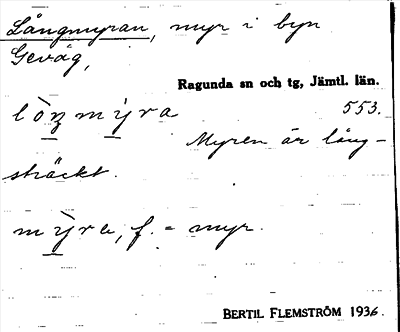 Långmyran, myr i byn
Gevåg,
Ragunda sn och tg, Jämtl. län.
lòŋmỳra 553.
Myren är lång-
sträckt.
mỳra, f. = myr.
BERTIL FLEMSTRÖM 1936.